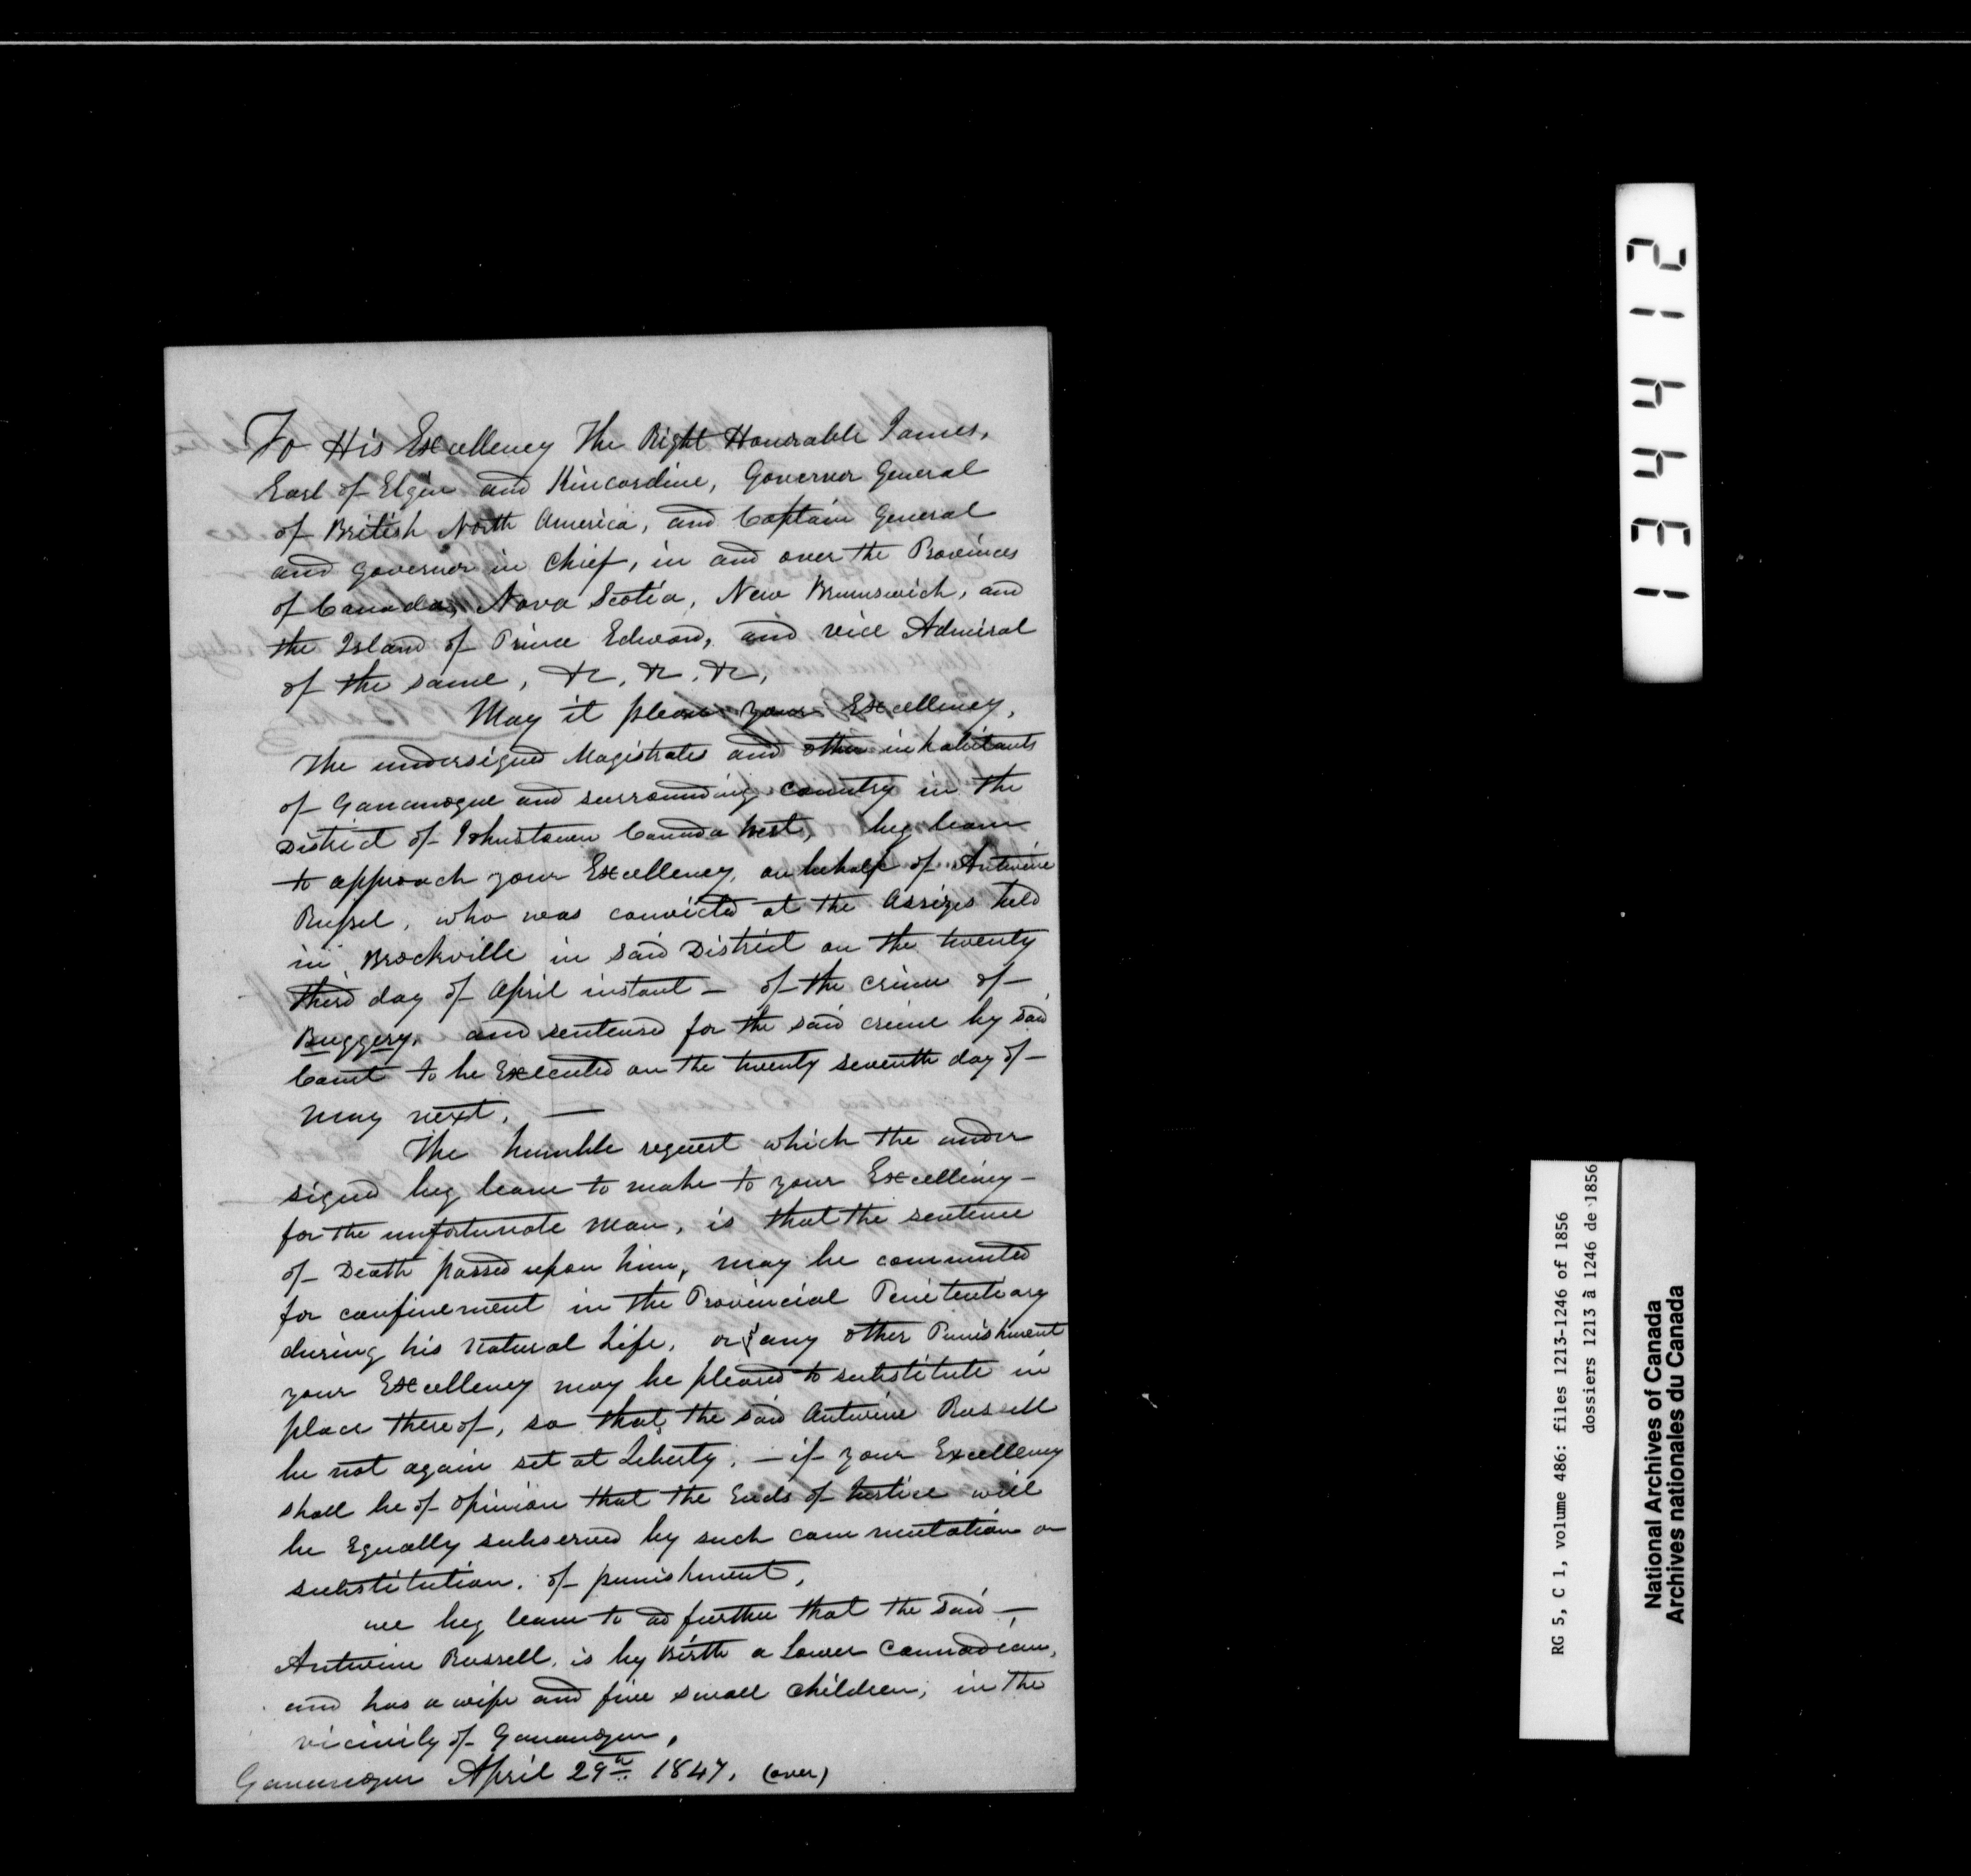 To His Excellency The Right Honorable James,
Earl of Elgin and Kincardine, Governor General
of British North America, and Captain General
and Governor in Chief, in and over the Provinces
of Canada, Nova Scotia, New Brunswick, and
the Island of Prince Edward, and vice Admiral
of the same, &c, &c, &c,
May it please your Excellency,
The undersigned Magistrates and other inhabitants
of Gananoque and surrounding country in the
District of Johnstown Canada West, beg leave
to approach your Excellency, on behalf of Antwine
Russel, who was convicted at the Assizes held
in Brockville in said District on the twenty
third day of April instant — of the crime of —
Buggery, and sentensed for the said crime by said
Court to be Executed on the twenty seventh day of —
may next, —
The humble request which the under
signed beg leave to make to your Excellency —
for the unfortunate man, is that the sentence
of Death passed upon him, may be commuted
for confinement in the Provincial Penitentiary
during his natural Life, or any other Punishment
your Excellency may be pleased to substitute in
place thereof, so that the said Antwine Russell
be not again set at Liberty, — if your Excellency
shall be of opinion that the Ends of Justice will
be Equally subserved by such commutation or
substitution, of punishment,
we beg leave to ad further that the said —
Antwine Russell, is by Birth a Lower Cannadian,
and has a wife and five small children, in the
vicinity of Gananoque,
Gananoque April 29th 1847, (over)
134412
RG 5, C 1, volume 486: files 1213-1246 of 1856
dossiers 1213 à 1246 de 1856
National Archives of Canada
Archives nationales du Canada